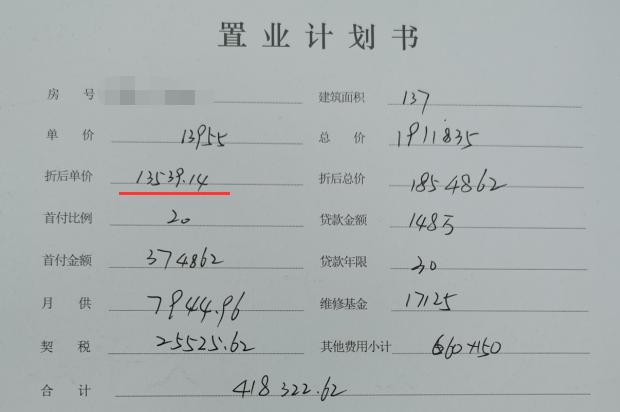 置业计划书
房号 建筑面积 137
单价 13955 总价 1911835
折后单价 13539.14 折后总价 1854862
首付比例 20 贷款金额 148万
首付金额 374862 贷款年限 30
月供 7944.96 维修基金 17125
契税 25525.62 其他费用小计 660+150
合计 418322.62